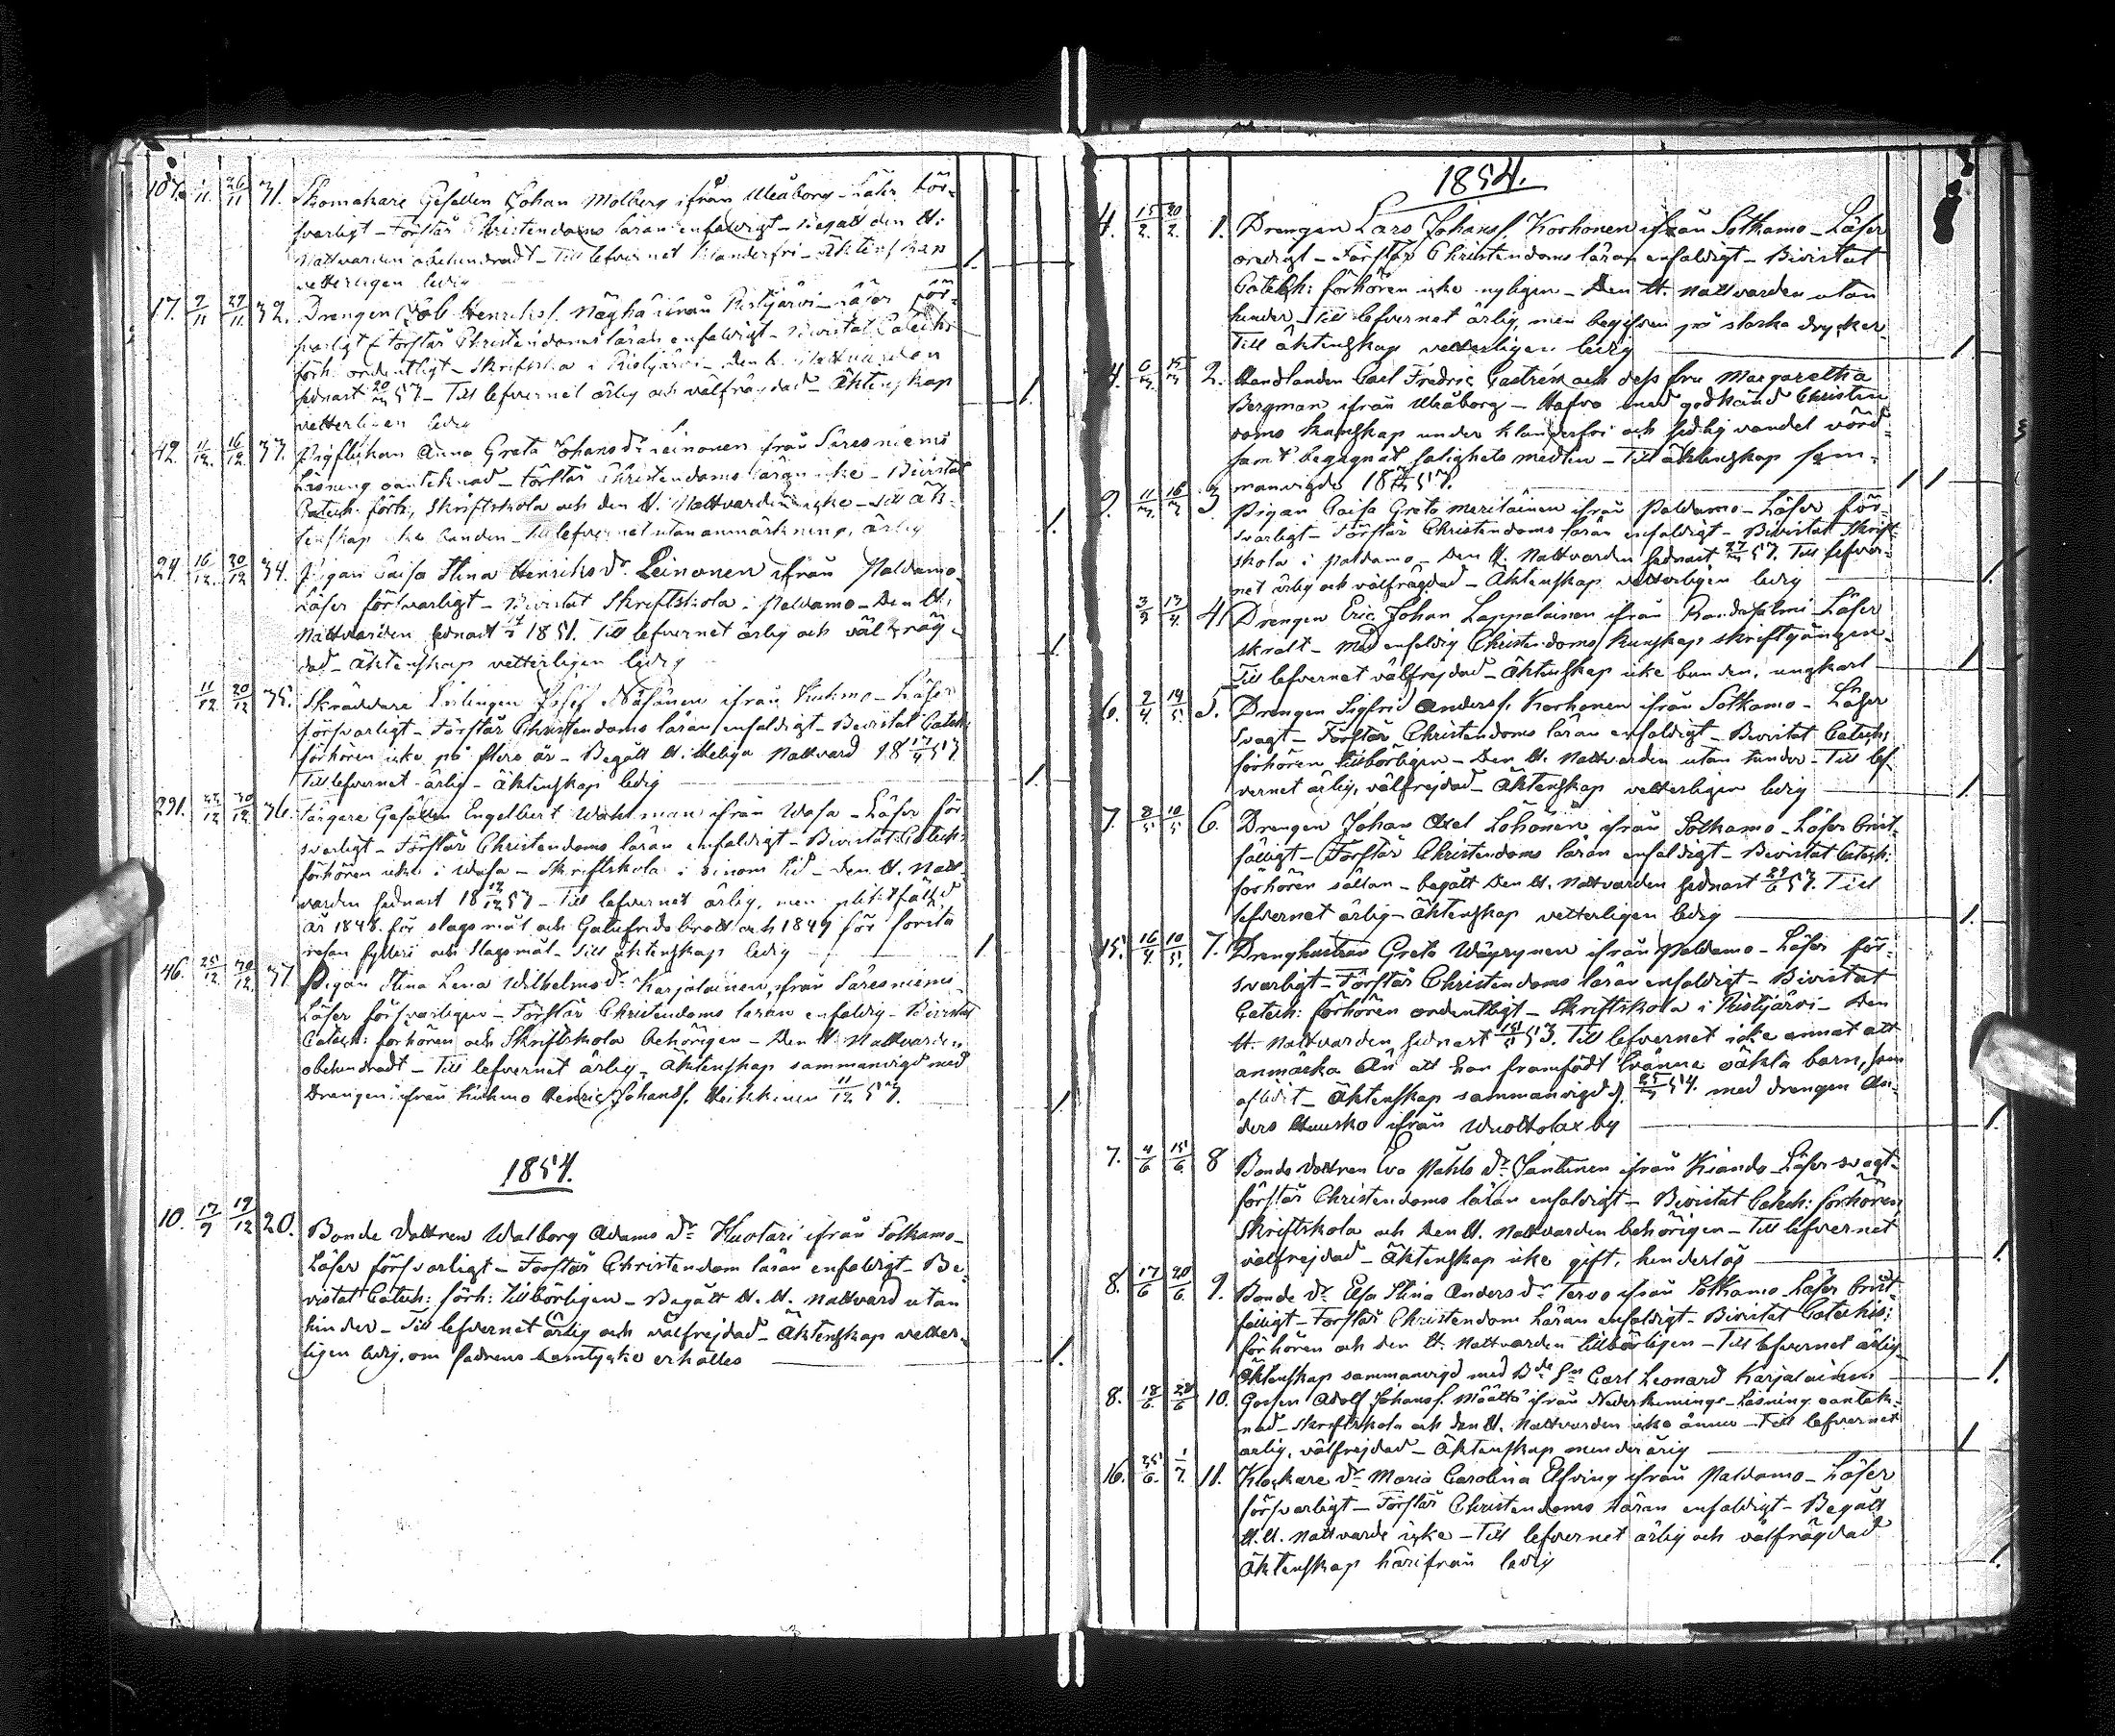 107. 1/11 26/11 31. Skomakare Gesällen Johan Molberg ifrån Uleåborg - Läser för-
svarligt - Förstår Christendoms läran enfaldigt - Begått den H:
Nattvarden obehindradt - Till lefvernet klanderfri - Äktenskap
vetterligen ledig 1.
17. 7/11 27/11 32. Drengen Job Henrikss. Näghä ifrån Ristijärvi - Läser för-
svarligt förstår Christendoms läran enfaldigt - Bivistat Catech:
förh. ordentligt - Skriftskola i Ristijärvi - Den h. Nattvarden
sednast 53 - Till lefvernet ärlig och välfrägdad - Äktenskap
vetterligen ledig 1.
42. 11/12. 16/12. 33. Pigflickan Anna Greta Johans dr Leinonen från Säresniemi
Läsning oantecknad - förstår Christendoms läran icke - Bivistat
Catech: förh., Skriftskola och den H. Nattvarden icke - till äk-
tenskap icke bunden - Till lefvernet utan anmärkning, ärlig 1.
24. 16/12. 20/12 34. Pigan Caisa Stina Henriks dr Leinonen ifrån Paldamo -
Läser försvarligt - Bivistat Skriftskola i Paldamo - Den H.
Nattvarden sednast 1851. Till lefvernet ärlig och välfräg-
dad - Äktenskap vetterligen ledig 1.
11/12. 20/12 35. Skräddare Lärlingen Josef Näsänen ifrån Kuhmo - Läser
försvarligt - Förstår Christendoms läran enfaldigt - Bevistat Catech:
förhören icke på flera år - Begått H. Heliga Nattvard 18 17/4 53.
Till lefvernet ärlig - Äktenskap ledig 1.
291. 22/12 30/12. 36. Färgare Gesällen Engelbert Wahlman ifrån Wasa - Läser för
svarligt - Förstår Christendoms läran enfaldigt - Bivistat Catech:
förhören icke i Wasa - Skriftskola i sinom tid - Den H. Natt-
varden sednast 18 53 - Till lefvernet ärlig, men pliktfälld
år 1848. för slagsmål och Gatufridsbrott och 1849 för första
resan fylleri och slagsmål - Till äktenskap ledig 1.
46. 25/12. 30/12. 37 Pigan Stina Lena Wilhelms dr Karjalainen, ifrån Säresniemi -
Läser försvarligen - Förstår Christendoms läran enfaldig - Bivistat
Catech: förhören och Skriftskola behörigen - Den H. Nattvarden
obehindradt - Till lefvernet ärlig - Äktenskap sammanvigd med
Drengen ifrån Kuhmo Henric Johanss. Heikkinen 11/12 53. 1.
1854.
10. 17/9 19/12 20. Bonde dottren Walborg Adams dr Huotari ifrån Sotkamo -
Läser försvarligt - Förstår Christendom läran enfaldigt - Be-
vistat Catech: förh: tillbörligen - Begått H. H. Nattvard utan
hinder - Till lefvernet ärlig och välfrejdad - Äktenskap vetter-
ligen ledig, om fadrens samtycke erhålles 1.
1854.
4. 15/2. 20/2. 1. Drengen Lars Johanss. Korhonen ifrån Sotkamo - Läser
oredigt - Förstår Christendoms läran enfaldigt - Bivistat
Catech: förhören icke nyligen - Den H. Nattvarden utan
hinder - Till lefvernet ärlig, men begifven på starka drycker
Till äktenskap vetterligen ledig 1
4. 6/3. 15/3 2. Handlanden Carl Fredric Castrén och dess fru Margaretha
Bergman ifrån Uleåborg - Hafva med godkänd Christen
doms kunskap under klanderfri och sedlig vandel vörd-
samt begagnat salighets medlen - Till äktenskap sam-
manvigde 18 53. 1 1
9. 11/3. 16/3 3. Pigan Caisa Greta Meriläinen ifrån Paldamo - Läser för-
svarligt - Förstår Christendoms läran enfaldigt - Bivistat Skrift-
skola i Paldamo - Den H. Nattvarden sednast 53. Till lefver-
net ärlig och välfrägdad - Äktenskap vetterligen ledig 1.
3/3 13/4. 4. Drengen Eric Johan Lappalainen ifrån Randasalmi - Läser
skralt - Med enfaldig Christendoms kunskap skriftgången
Till lefvernet välfrejdad - Äktenskap icke bunden, ungkarl 1
6. 2/4 14/5 5. Drengen Sigfrid Anderss. Korhonen ifrån Sotkamo - Läser
Svagt - Förstår Christendoms läran enfaldigt - Bivistat Catech:
förhören tillbörligen - Den H. Nattvarden utan hinder - Till lef-
vernet ärlig, välfrejdad - Äktenskap vetterligen ledig 1.
7. 8/5 10/5 6. Drengen Johan Axel Löhönen ifrån Sotkamo - Läser brist-
fälligt - Förstår Christendoms läran enfaldigt - Bivistat Catech:
förhören sällan - begått Den H. Nattvarden sednast 29/6 53. Till
lefvernet ärlig - Äktenskap vetterligen ledig 1.
15. 16/4 10/5. 7. Drenghustrun Greta Wäyrynen ifrån Paldamo - Läser för-
svarligt - Förstår Christendoms läran enfaldigt - Bivistat
Catech: förhören ordentligt - Skriftskola i Ristijärvi - Den
H. Nattvarden sednast 53. Till lefvernet icke annat att
anmärka än att hon framfödt tvänne oäkta barn, som
aflidit - Äktenskap sammanvigd d. 25/3 54. med drengen An-
ders Huusko ifrån Wuottolax by 1.
7. 4/6 15/6. 8 Bonde dottren Eva Påhls dr Jantunen ifrån Kiando - Läser svagt -
förstår Christendoms läran enfaldigt - Bivistat Catech: förhören,
Skriftskola och Den H. Nattvarden behörigen - Till lefvernet
välfrejdad - Äktenskap icke gift, hinderlös 1.
8. 17/6 20/6. 9. Bonde dr Elsa Stina Anders dr Tervo ifrån Sotkamo - Läser brist-
fälligt - Förstår Christendom Läran enfaldigt - Bivistat Catechis:
förhören och den H. Nattvarden tillbörligen - Till lefvernet ärlig -
Äktenskap sammanvigd med Bde Sn Carl Leonard Karjalainen 1.
8. 18/6. 28/6 10. Gossen Adolf Johanss. Määttä ifrån Neder Kiminge - Läsning oanteck-
nad - Skriftskola och den H. Nattvarden icke ännu - Till lefvernet
ärlig, välfrejdad - Äktenskap minderårig 1
16. 25/6. 1/7. 11. Klockare dr Maria Carolina Elfving ifrån Paldamo - Läser
försvarligt - Förstår Christendoms Läran enfaldigt - Begått
H. H. Nattvarde icke - Till lefvernet ärlig och välfrägdad
Äktenskap härifrån ledig 1.